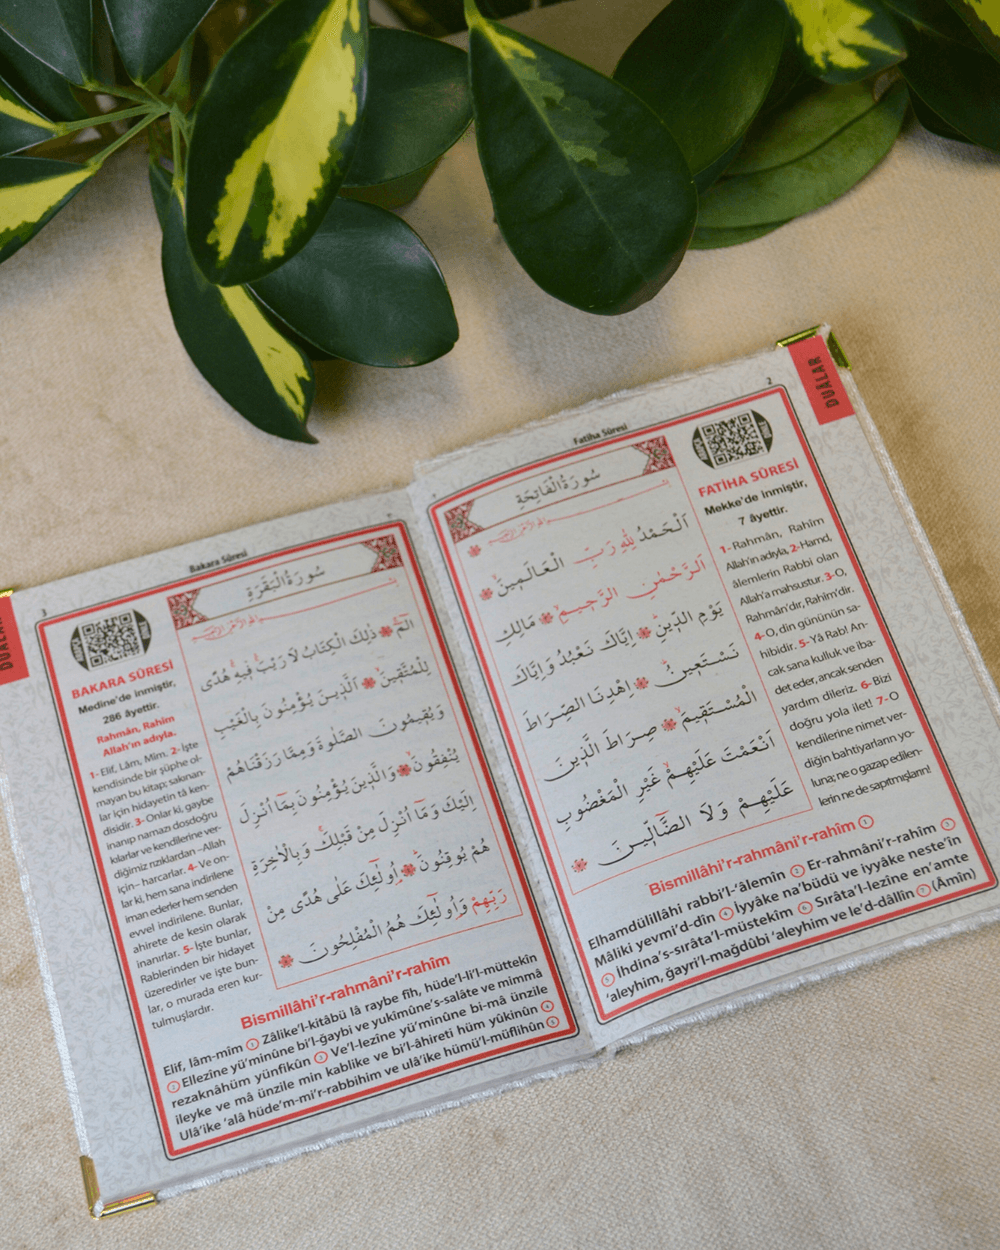 DUALAR
2
Fatiha Sûresi
سُورَةُ الْفَاتِحَةِ
اَلْحَمْدُ لِلّٰهِ رَبِّ الْعَالَمٖينَۙ
اَلرَّحْمٰنِ الرَّحٖيمِۙ مَالِكِ
يَوْمِ الدّٖينِۜ اِيَّاكَ نَعْبُدُ وَاِيَّاكَ
نَسْتَعٖينُۜ اِهْدِنَا الصِّرَاطَ
الْمُسْتَقٖيمَۙ صِرَاطَ الَّذٖينَ
اَنْعَمْتَ عَلَيْهِمْۙ غَيْرِ الْمَغْضُوبِ
عَلَيْهِمْ وَلَا الضَّٓالّٖينَ
FATİHA SÛRESİ
Mekke'de inmiştir,
7 âyettir.
1- Rahmân, Rahîm
Allah'ın adıyla, 2- Hamd,
âlemlerin Rabbi olan
Allah'a mahsustur. 3- O,
Rahmân'dır, Rahîm'dir.
4- O, din gününün sa-
hibidir. 5- Yâ Rab! An-
cak sana kulluk ve iba-
det eder, ancak senden
yardım dileriz. 6- Bizi
doğru yola ilet! 7- O
kendilerine nimet ver-
diğin bahtiyarların yo-
luna; ne o gazap edilen-
lerin ne de sapıtmışların!
Bismillâhi'r-rahmâni'r-rahîm 1
Elhamdülillâhi rabbi'l-'âlemîn 2 Er-rahmâni'r-rahîm 3
Mâliki yevmi'd-dîn 4 İyyâke na'büdü ve iyyâke neste'în
5 İhdina's-sırâta'l-müstekîm 6 Sırâta'l-lezîne en'amte
'aleyhim, ğayri'l-mağdûbi 'aleyhim ve le'd-dâllîn 7 (Âmîn)
DUALAR
3
Bakara Sûresi
سُورَةُ الْبَقَرَةِ
الٓمٓۚ ذٰلِكَ الْكِتَابُ لَا رَيْبَۚۛ فٖيهِۚۛ هُدًى
لِلْمُتَّقٖينَۙ اَلَّذٖينَ يُؤْمِنُونَ بِالْغَيْبِ
وَيُقٖيمُونَ الصَّلٰوةَ وَمِمَّا رَزَقْنَاهُمْ
يُنْفِقُونَۙ وَالَّذٖينَ يُؤْمِنُونَ بِمَٓا اُنْزِلَ
اِلَيْكَ وَمَٓا اُنْزِلَ مِنْ قَبْلِكَۚ وَبِالْاٰخِرَةِ
هُمْ يُوقِنُونَۜ اُو۬لٰٓئِكَ عَلٰى هُدًى مِنْ
رَبِّهِمْ وَاُو۬لٰٓئِكَ هُمُ الْمُفْلِحُونَ
BAKARA SÛRESİ
Medine'de inmiştir,
286 âyettir.
Rahmân, Rahîm
Allah'ın adıyla.
1- Elif, Lâm, Mîm. 2- İşte
kendisinde bir şüphe ol-
mayan bu kitap; sakınan-
lar için hidayetin tâ ken-
disidir. 3- Onlar ki, gaybe
inanıp namazı dosdoğru
kılarlar ve kendilerine ver-
diğimiz rızıklardan –Allah
için– harcarlar. 4- Ve on-
lar ki, hem sana indirilene
iman ederler hem senden
evvel indirilene. Bunlar,
ahirete de kesin olarak
inanırlar. 5- İşte bunlar,
Rablerinden bir hidayet
üzeredirler ve işte bun-
lar, o murada eren kur-
tulmuşlardır.
Bismillâhi'r-rahmâni'r-rahîm
Elif, lâm-mîm 1 Zâlike'l-kitâbü lâ raybe fîh, hüde'l-li'l-müttekîn
2 Ellezîne yü'minûne bi'l-ğaybi ve yukîmûne's-salâte ve mimmâ
rezaknâhüm yünfikûn 3 Ve'l-lezîne yü'minûne bi-mâ ünzile
ileyke ve mâ ünzile min kablike ve bi'l-âhireti hüm yûkinûn 4
Ulâ'ike 'alâ hüde'm-mi'r-rabbihim ve ulâ'ike hümü'l-müflihûn 5